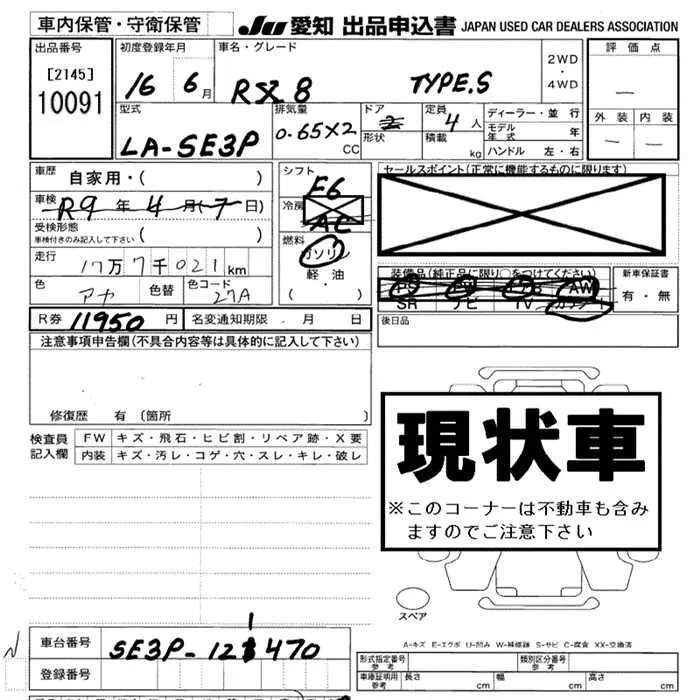 車内保管・守衛保管
JU 愛知 出品申込書 JAPAN USED CAR DEALERS ASSOCIATION
出品番号
[2145]
10091
初度登録年月
16 6月
車名・グレード
RX 8 TYPE.S
2WD
・
4WD
評価点
—
外装 内装
— —
型式
LA-SE3P
排気量
0.65×2
CC
ドア
2
形状
定員
4人
積載
kg
ディーラー・並行
モデル年式 年
ハンドル 左・右
車歴
自家用・( )
車検
R9年4月(-7日)
受検形態
車検付きのみ記入して下さい ( )
走行
17万7千021km
色
アカ
色替
色コード
27A
シフト
F6
冷房
AC
燃料
ガソリン
軽・油
( ・ )
セールスポイント(正常に機能するものに限ります)
装備品(純正品に限り○をつけてください)
PS PW AW
SR ナビ TV
新車保証書
有・無
R券 11950円
名変通知期限 . 月 日
後日品
注意事項申告欄(不具合内容等は具体的に記入して下さい)
修復歴 有 〔箇所 〕
検査員記入欄
FW キズ・飛石・ヒビ割・リペア跡・X要
内装 キズ・汚レ・コゲ・穴・スレ・キレ・破レ
現状車
※このコーナーは不動車も含みますのでご注意下さい
スペア
A-キズ E-エクボ U-凹み W-補修跡 S-サビ C-腐食 XX-交換済
車台番号
SE3P-121470
登録番号
形式指定番号
参考
類別区分番号
参考
車庫証明用
参考
長さ cm 幅 cm 高さ cm